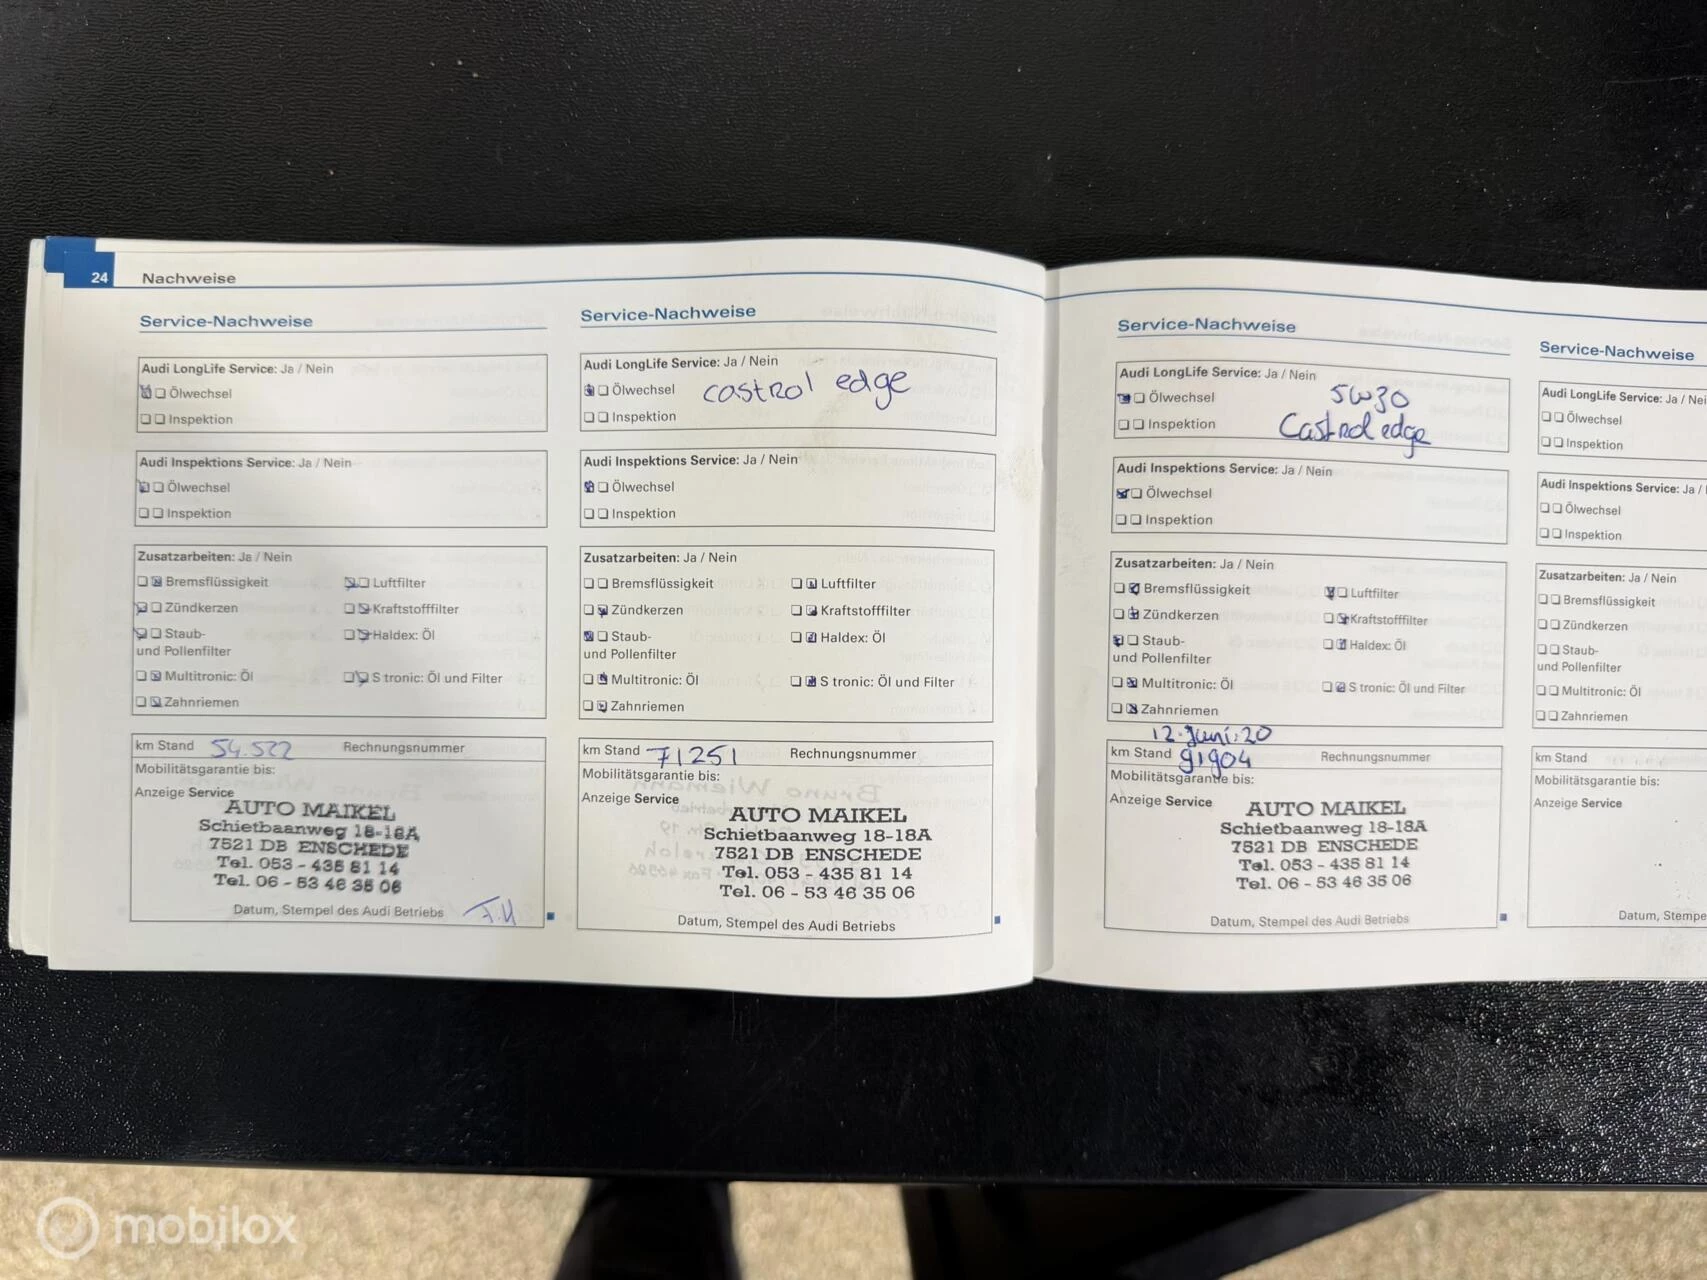 24 Nachweise
Service-Nachweise
Audi LongLife Service: Ja / Nein
Ölwechsel
Inspektion
Audi Inspektions Service: Ja / Nein
Ölwechsel
Inspektion
Zusatzarbeiten: Ja / Nein
Bremsflüssigkeit Luftfilter
Zündkerzen Kraftstofffilter
Staub- Haldex: Öl
und Pollenfilter
Multitronic: Öl S tronic: Öl und Filter
Zahnriemen
km Stand 54.522 Rechnungsnummer
Mobilitätsgarantie bis:
Anzeige Service
AUTO MAIKEL
Schietbaanweg 18-18A
7521 DB ENSCHEDE
Tel. 053 - 435 81 14
Tel. 06 - 53 46 35 06
Datum, Stempel des Audi Betriebs
Service-Nachweise
Audi LongLife Service: Ja / Nein
Ölwechsel castrol edge
Inspektion
Audi Inspektions Service: Ja / Nein
Ölwechsel
Inspektion
Zusatzarbeiten: Ja / Nein
Bremsflüssigkeit Luftfilter
Zündkerzen Kraftstofffilter
Staub- Haldex: Öl
und Pollenfilter
Multitronic: Öl S tronic: Öl und Filter
Zahnriemen
km Stand 71251 Rechnungsnummer
Mobilitätsgarantie bis:
Anzeige Service
AUTO MAIKEL
Schietbaanweg 18-18A
7521 DB ENSCHEDE
Tel. 053 - 435 81 14
Tel. 06 - 53 46 35 06
Datum, Stempel des Audi Betriebs
Service-Nachweise
Audi LongLife Service: Ja / Nein
Ölwechsel 5W30
Inspektion Castrol edge
Audi Inspektions Service: Ja / Nein
Ölwechsel
Inspektion
Zusatzarbeiten: Ja / Nein
Bremsflüssigkeit Luftfilter
Zündkerzen Kraftstofffilter
Staub- Haldex: Öl
und Pollenfilter
Multitronic: Öl S tronic: Öl und Filter
Zahnriemen
12.Juni.20
km Stand 91904 Rechnungsnummer
Mobilitätsgarantie bis:
Anzeige Service
AUTO MAIKEL
Schietbaanweg 18-18A
7521 DB ENSCHEDE
Tel. 053 - 435 81 14
Tel. 06 - 53 46 35 06
Datum, Stempel des Audi Betriebs
Service-Nachweise
Audi LongLife Service: Ja / Nei
Ölwechsel
Inspektion
Audi Inspektions Service: Ja /
Ölwechsel
Inspektion
Zusatzarbeiten: Ja / Nein
Bremsflüssigkeit
Zündkerzen
Staub-
und Pollenfilter
Multitronic: Öl
Zahnriemen
km Stand
Mobilitätsgarantie bis:
Anzeige Service
Datum, Stempe
mobilox